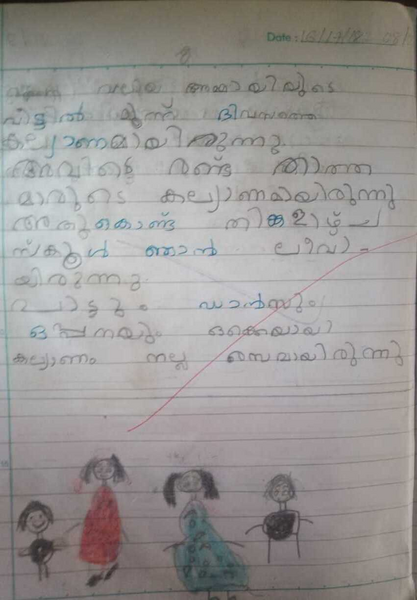 Date :
വലിയ അമ്മായിയുടെ
വീട്ടിൽ മൂന്ന് ദിവസത്തെ
കല്യാണമായിരുന്നു.
അവിടെ രണ്ട് താത്ത
മാരുടെ കല്യാണമായിരുന്നു
അതുകൊണ്ട് തിങ്കളാഴ്ച
സ്കൂൾ ഞാൻ ലീവാ-
യിരുന്നു.
പാട്ടും ഡാൻസും
ഒപ്പനയും ഒക്കെയായി
കല്യാണം നല്ല രസമായിരുന്നു